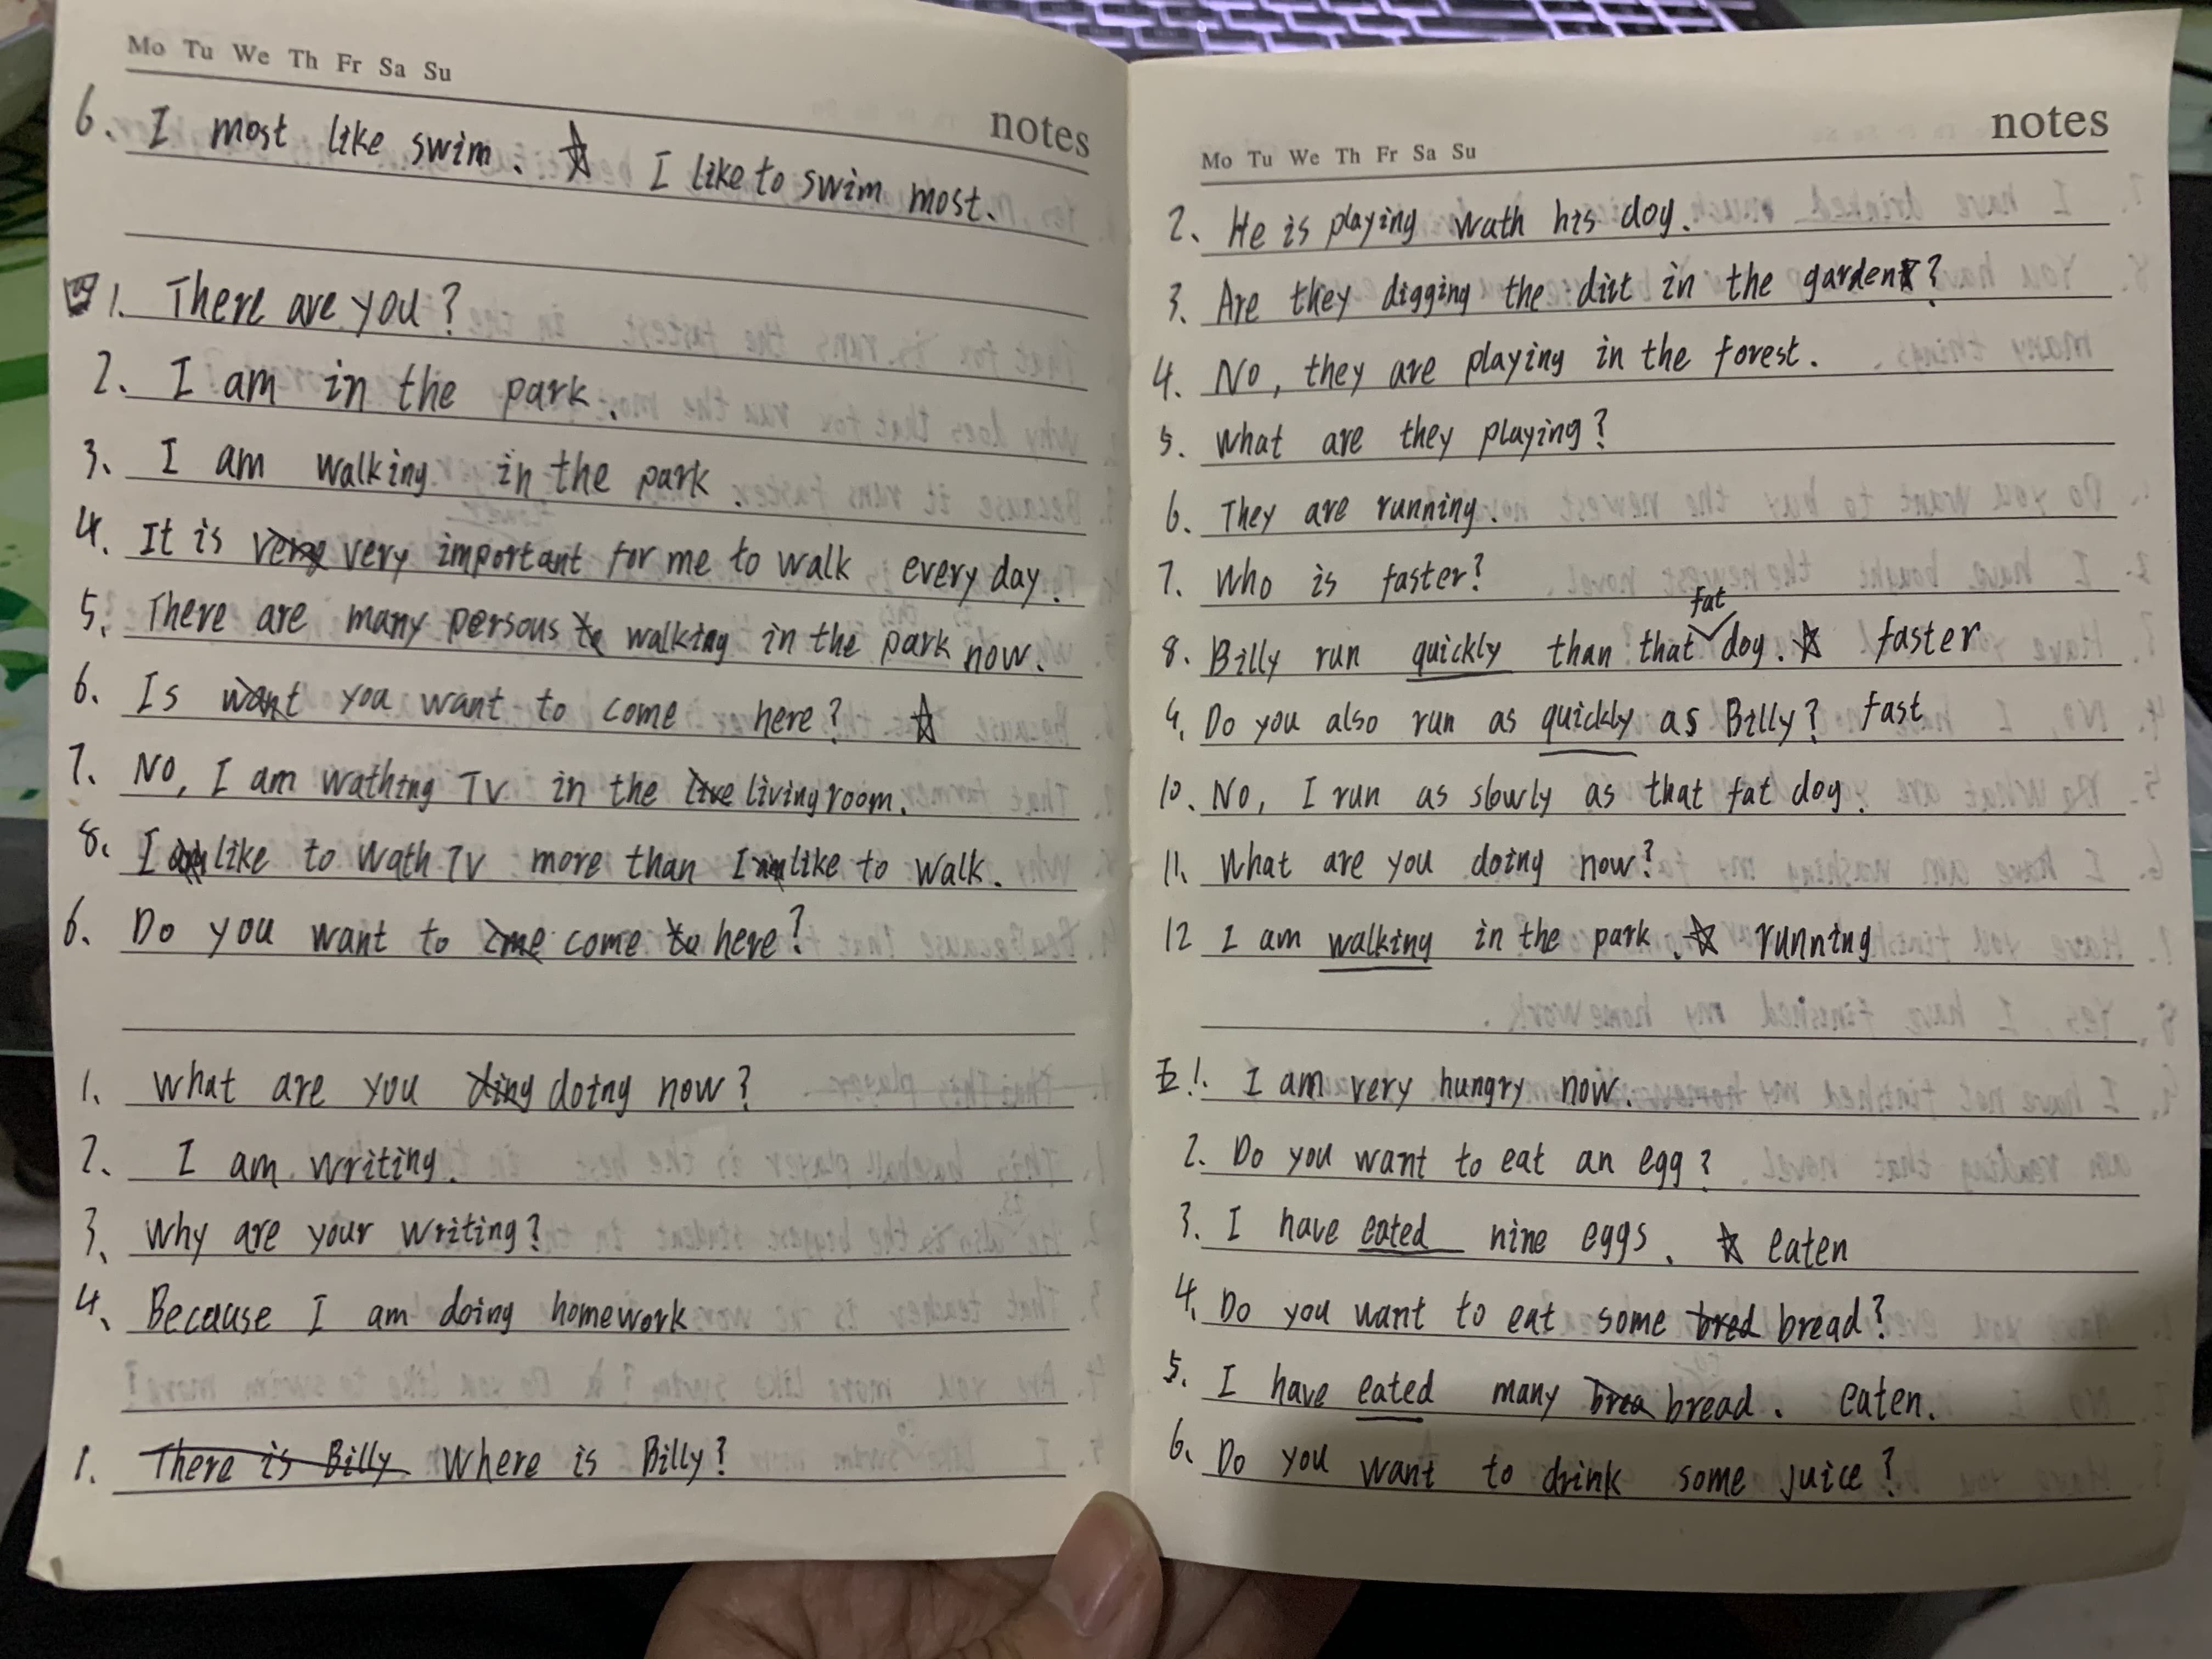 Mo Tu We Th Fr Sa Su
notes
6. I most like swim. ☆ I like to swim most.
1. There are you?
2. I am in the park.
3. I am walking in the park.
4. It is very important for me to walk every day.
5. There are many persous walking in the park now.
6. Is you want to come here? ☆
7. No, I am wathing TV in the living room.
8. I like to wath TV more than I like to walk.
6. Do you want to come here?
1. What are you doing now?
2. I am writing.
3. Why are your writing?
4. Because I am doing homework
1. There is Billy Where is Billy?
notes
Mo Tu We Th Fr Sa Su
2. He is playing wath his dog.
3. Are they digging the dirt in the garden?
4. No, they are playing in the forest.
5. What are they playing?
6. They are running.
7. Who is faster?
8. Billy run quickly than that fat dog. ☆ faster
9. Do you also run as quickly as Billy? fast
10. No, I run as slowly as that fat dog.
11. What are you doing now?
12 I am walking in the park. ☆ running
五 1. I am very hungry now.
2. Do you want to eat an egg?
3. I have eated nine eggs. ☆ eaten
4. Do you want to eat some bred bread?
5. I have eated many brea bread. eaten.
6. Do you want to drink some juice?